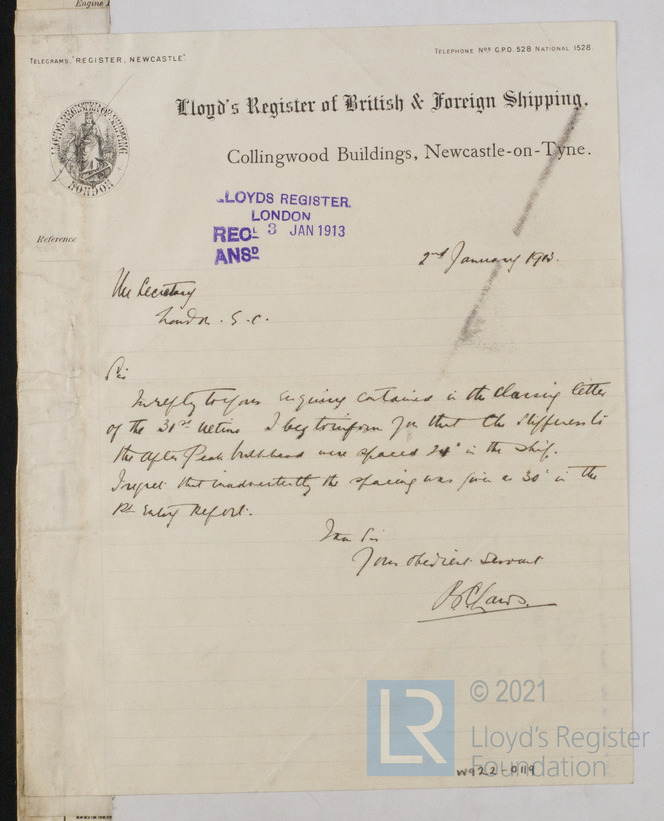 Engine
TELEGRAMS, "REGISTER, NEWCASTLE".
TELEPHONE Nos G.P.O. 528 NATIONAL 1528.
LLOYD'S REGISTER OF SHIPPING
LONDON
Lloyd's Register of British & Foreign Shipping.
Collingwood Buildings, Newcastle-on-Tyne.
LLOYDS REGISTER
LONDON
RECD 3 JAN 1913
ANSD
Reference
2nd January 1913.
The Secretary
London. E.C.
Sir
In reply to your enquiry contained in the Classing letter
of the 30th Ultimo I beg to inform you that the Stiffeners to
the After Peak bulkhead were spaced 24" in the Ship.
I regret that inadvertently the spacing was given as 30" in the
1st Entry Report.
I am Sir
Your obedient Servant
B C Laws.
LR
© 2021
Lloyd's Register
Foundation
W922-0119